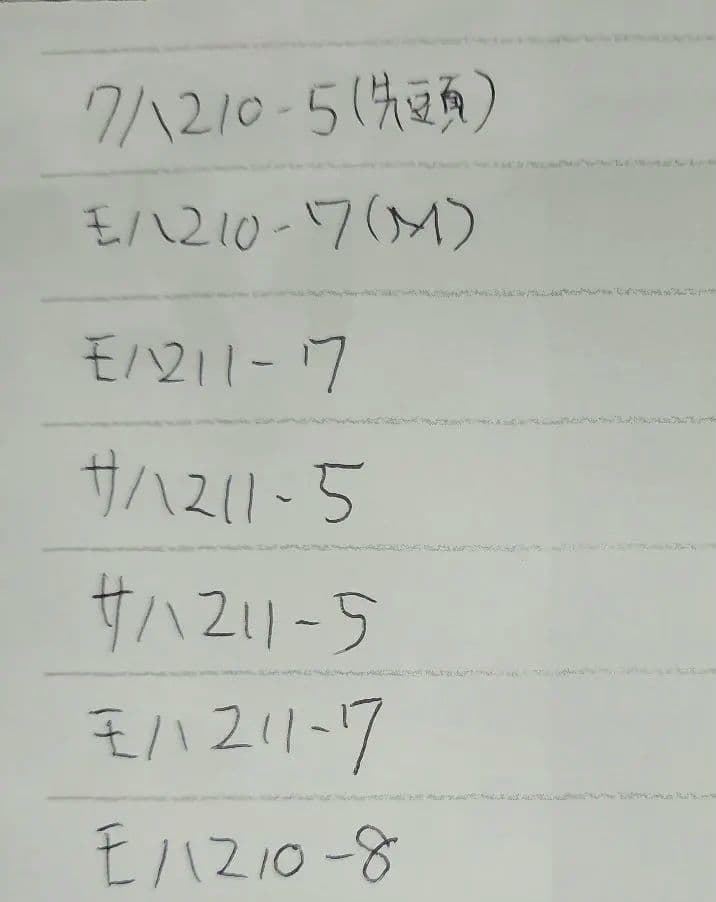 クハ210-5(先頭)
モハ210-7(M)
モハ211-7
サハ211-5
サハ211-5
モハ211-7
モハ210-8